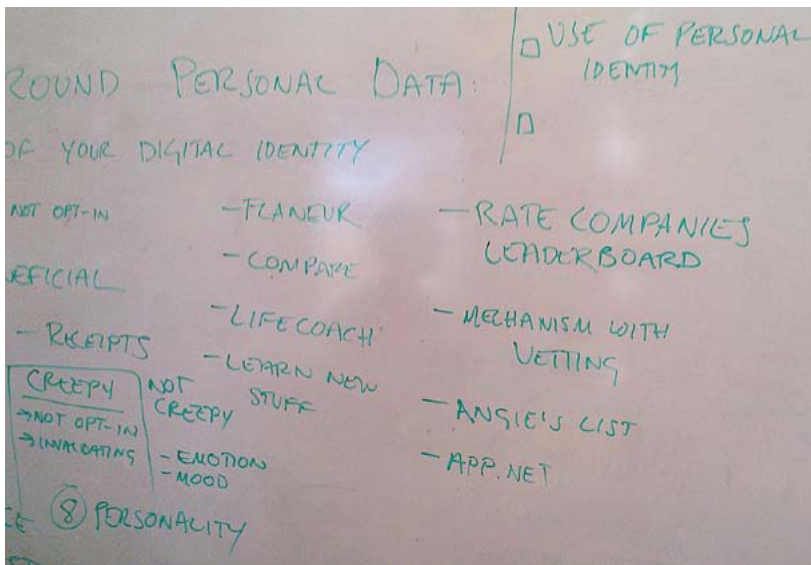 USE OF PERSONAL
IDENTITY
ROUND PERSONAL DATA:
OF YOUR DIGITAL IDENTITY
NOT OPT-IN
EFICIAL
- RECEIPTS
CREEPY
→NOT OPT-IN
→INVALIDATING
NOT
CREEPY
- EMOTION
- MOOD
CE ⑧ PERSONALITY
- FLANEUR
- COMPARE
- LIFECOACH
- LEARN NEW
STUFF
- RATE COMPANIES
LEADERBOARD
- MECHANISM WITH
VETTING
- ANGIE'S LIST
- APP.NET